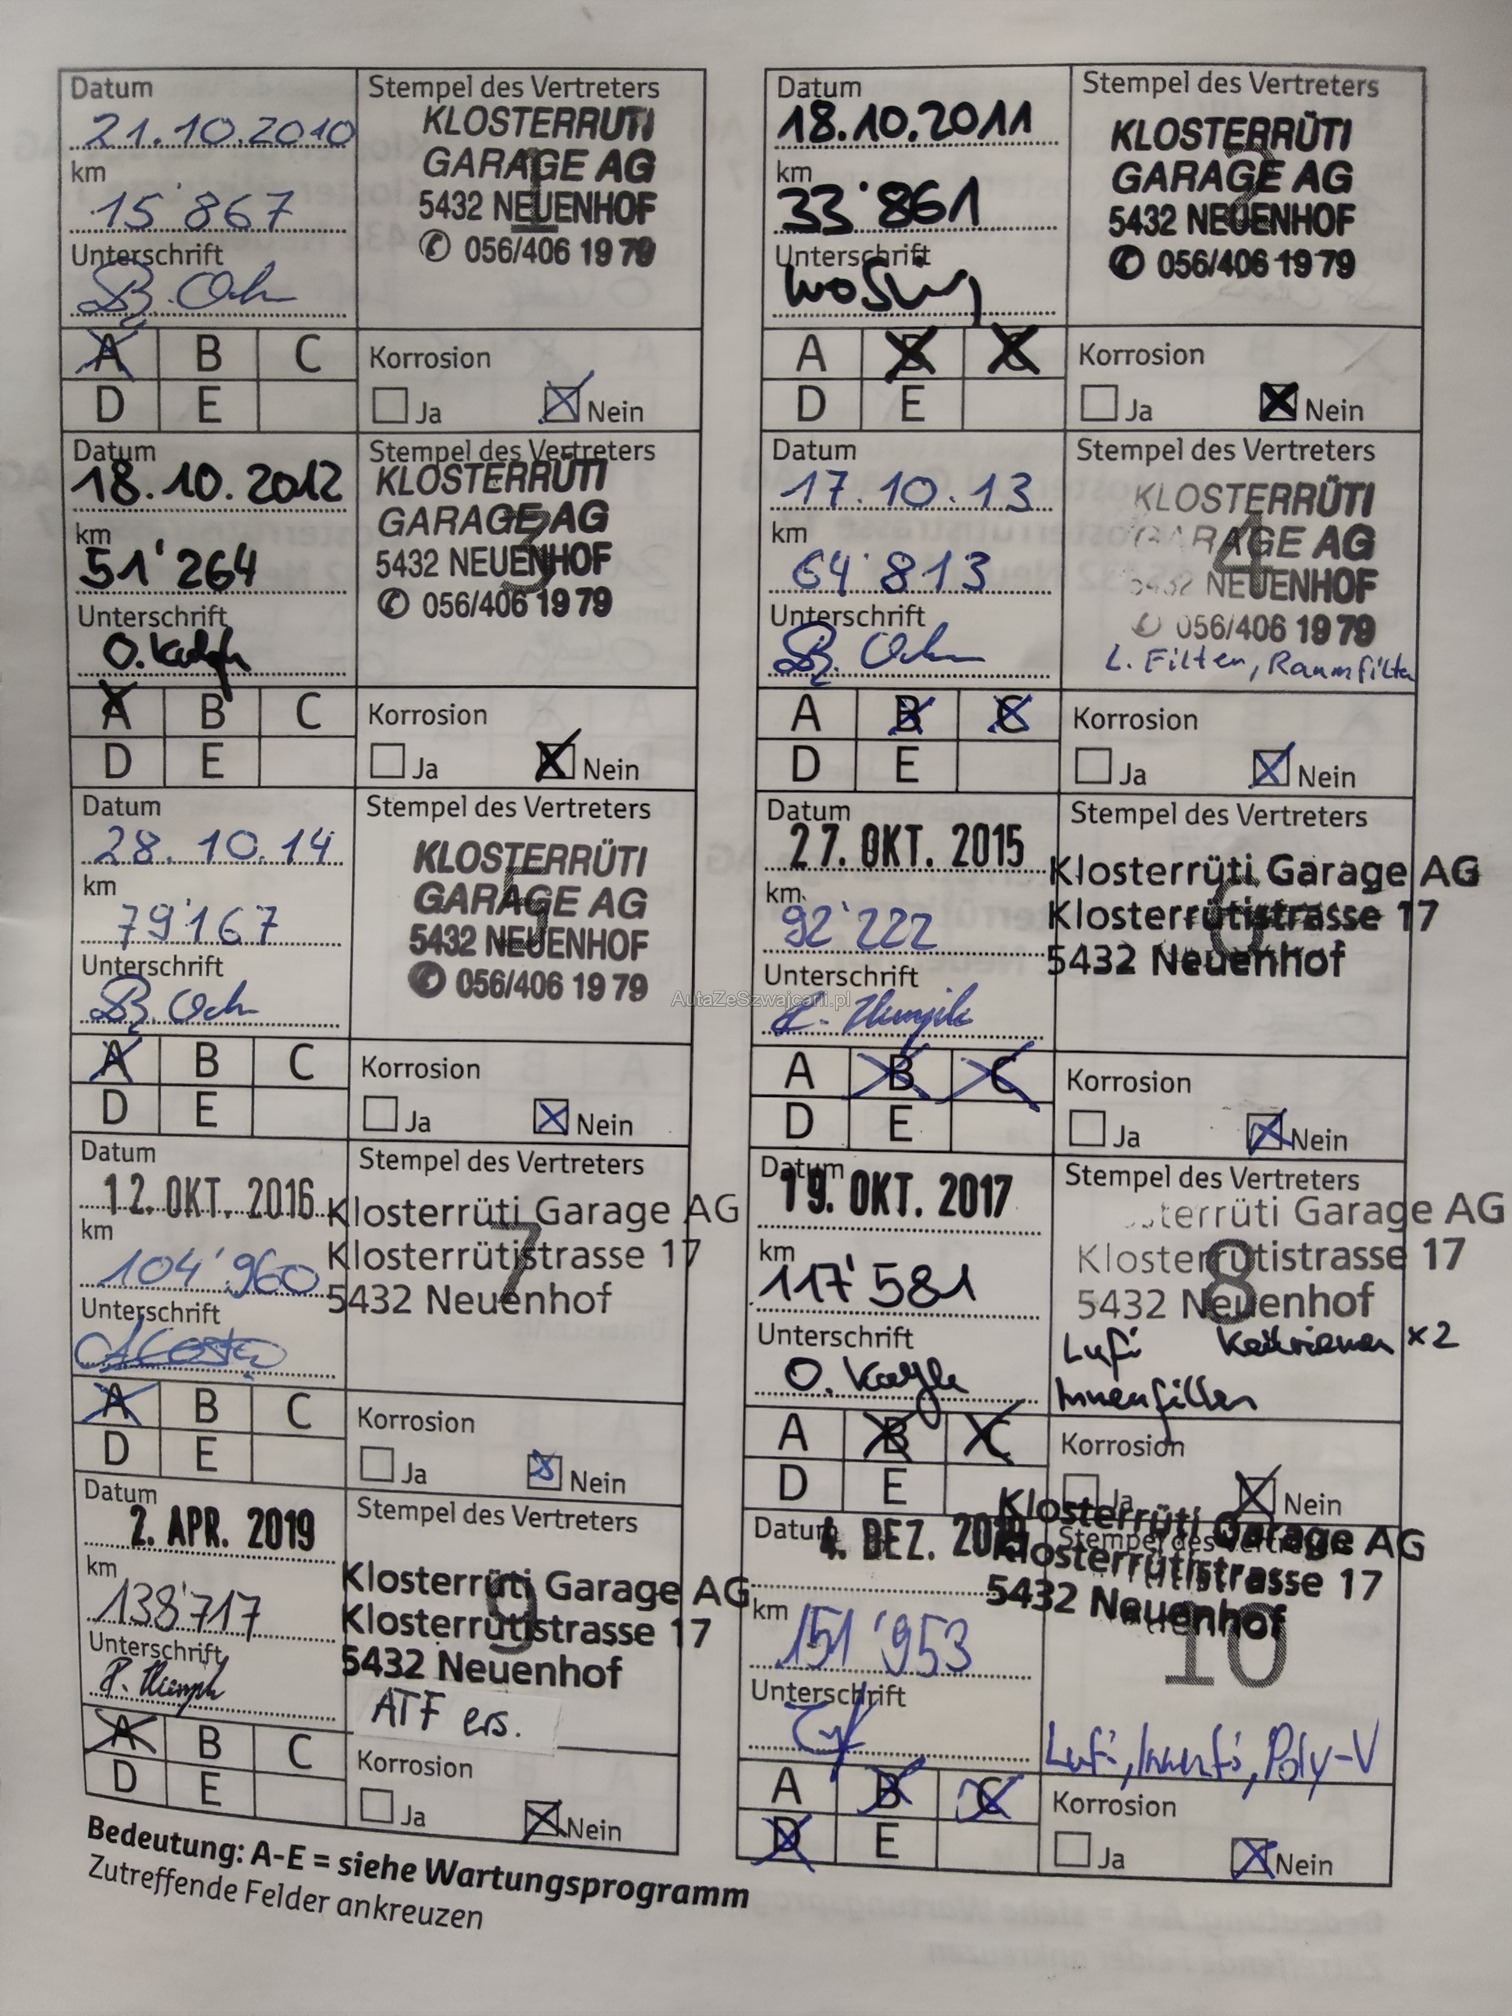 Datum
21.10.2010
km
15'867
Unterschrift
B. Och
Stempel des Vertreters
KLOSTERRÜTI
GARAGE AG
5432 NEUENHOF
✆ 056/406 19 79
1
A B C
D E
Korrosion
Ja Nein
Datum
18.10.2011
km
33'861
Unterschrift
Stempel des Vertreters
KLOSTERRÜTI
GARAGE AG
5432 NEUENHOF
✆ 056/406 19 79
2
A B C
D E
Korrosion
Ja Nein
Datum
18.10.2012
km
51'264
Unterschrift
Stempel des Vertreters
KLOSTERRÜTI
GARAGE AG
5432 NEUENHOF
✆ 056/406 19 79
3
A B C
D E
Korrosion
Ja Nein
Datum
17.10.13
km
64'813
Unterschrift
B. Och
Stempel des Vertreters
KLOSTERRÜTI
GARAGE AG
5432 NEUENHOF
✆ 056/406 19 79
4
L. Filter, Raumfilter
A B C
D E
Korrosion
Ja Nein
Datum
28.10.14
km
79'167
Unterschrift
B. Och
Stempel des Vertreters
KLOSTERRÜTI
GARAGE AG
5432 NEUENHOF
✆ 056/406 19 79
5
A B C
D E
Korrosion
Ja Nein
Datum
27. OKT. 2015
km
92'222
Unterschrift
Stempel des Vertreters
Klosterrüti Garage AG
Klosterrütistrasse 17
5432 Neuenhof
6
AutaZeSzwajcarii.pl
A B C
D E
Korrosion
Ja Nein
Datum
12. OKT. 2016
km
104'960
Unterschrift
Stempel des Vertreters
Klosterrüti Garage AG
Klosterrütistrasse 17
5432 Neuenhof
7
A B C
D E
Korrosion
Ja Nein
Datum
19. OKT. 2017
km
117'581
Unterschrift
Stempel des Vertreters
Klosterrüti Garage AG
Klosterrütistrasse 17
5432 Neuenhof
8
Lufi Keilriemen x2
Innenfilter
A B C
D E
Korrosion
Ja Nein
Datum
2. APR. 2019
km
138'717
Unterschrift
Stempel des Vertreters
Klosterrüti Garage AG
Klosterrütistrasse 17
5432 Neuenhof
9
ATF ers.
A B C
D E
Korrosion
Ja Nein
Datum
4. DEZ.
km
151'953
Unterschrift
Stempel des Vertreters
Klosterrüti Garage AG
Klosterrütistrasse 17
5432 Neuenhof
10
Lufi, Innenfi, Poly-V
A B C
D E
Korrosion
Ja Nein
Bedeutung: A-E = siehe Wartungsprogramm
Zutreffende Felder ankreuzen